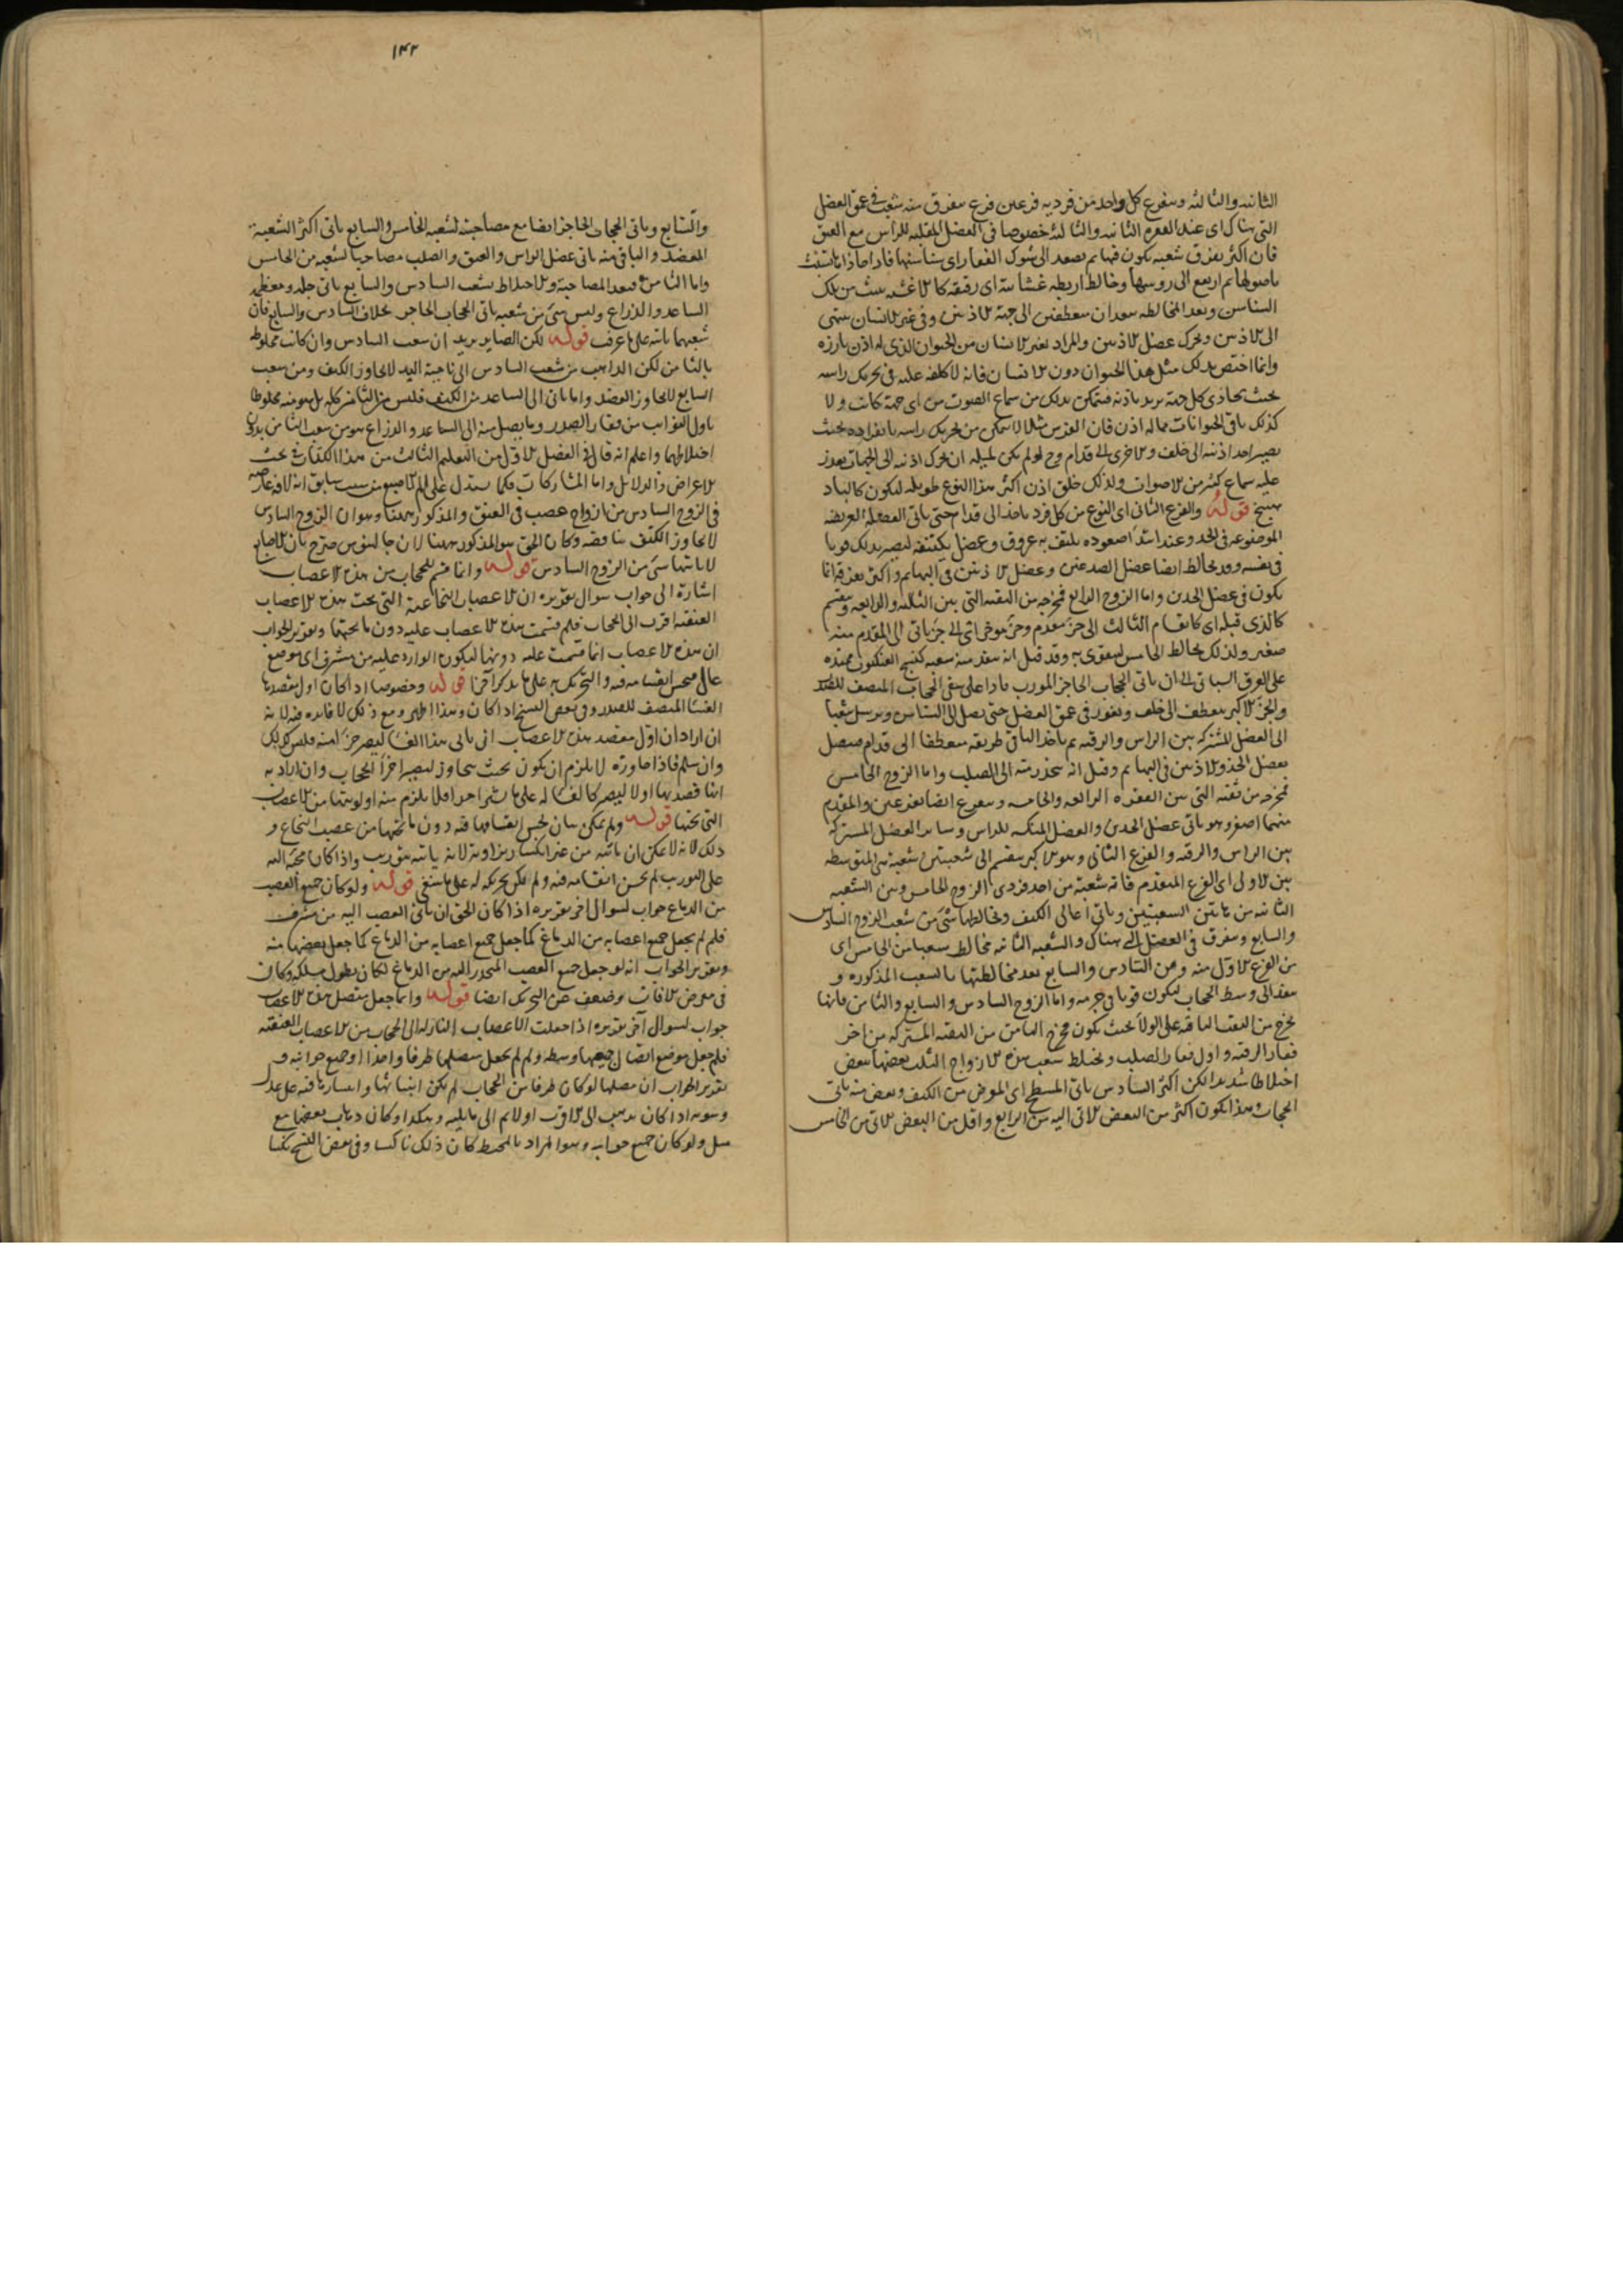 الثانية والثالثة ويتفرع كل واحد من فرديه فرعين فرع يتفرق منه شعب في عمق العضل
التي هناك اى عند الفقرة الثانية والثالثة خصوصا في العضل المقلبة للراس مع العنق
فان اكثر تفرق شعبه يكون فيها ثم يصعد الى شوك الفقار اى سناسنها فاذا حاذاها تشبث
باصولها ثم ارتفع الى روسها وخالط اربطة غشائية اى رقيقة كالاغشية تنبت من تلك
السناسن وبعد المخالطة ينعطفان الى جهة الاذنين وفي غير الانسان ينتهي
الى الاذنين ويحرك عضل الاذنين والمراد بغير الانسان من الحيوان الذي له اذن بارزة
وانما اختص بذلك مثل هذا الحيوان دون الانسان فانه لا كلفة عليه في تحريك راسه
بحيث يحاذى كل جهة يريد باذنه فيتمكن بذلك من سماع الصوت من اى جهة كانت ولا
كذلك باقى الحيوانات مما له اذن فان الفرس مثلا لا يتمكن من تحريك راسه بانفراده بحيث
يصير احد اذنيه الى خلف والاخرى الى قدام وح لو لم يكن لمثله ان يحرك اذنيه الى الجهات تعذر
عليه سماع كثير من الاصوات ولذلك خلق اذن اكثر هذا النوع طويلة ليكون كالباد
هنج قوله والفرع الثاني اى النوع من كل فرد ياخذ الى قدام حتى ياتى العضلة العريضة
الموضوعة في الخد وعند ابتدا صعوده يلتف به عروق وعضل يكتنفه ليصير بذلك قويا
في نفسه وقد يخالط ايضا عضل الصدغين وعضل الاذنين في البهايم واكثر تفرقه انما
يكون في عضل الخدين واما الزوج الرابع فمخرجه من الثقبة التي بين الثالثة والرابعة وينقسم
كالذى قبله اى كانقسام الثالث الى جز مقدم وجز موخر اى الى جز ياتى الى المقدم منه
صغير ولذلك يخالط الخامس ليتقوى به وقد قيل انه ينفذ منه شعبة كنسج العنكبوت ممتدة
على العرق السباتى الى ان ياتى الحجاب الحاجز المورب مارا على شقى الحجاب المنصف للصدر
والجز الاكبر ينعطف الى خلف ويغور في عمق العضل حتى يصل الى السناسن ويرسل شعبا
الى العضل المشترك بين الراس والرقبة ثم ياخذ الباقي طريقه منعطفا الى قدام فيتصل
بعضل الخد والاذنين في البهايم وقيل انه ينحدر منه الى الصلب واما الزوج الخامس
فمخرجه من ثقبة التي بين الفقرة الرابعة والخامسة ويتفرع ايضا بفرعين والمقدم
منهما اصغر وهو ياتى عضل الخدين والعضل المنكسة للراس وساير العضل المشتركة
بين الراس والرقبة والفرع الثاني وهو الاكبر ينقسم الى شعبتين شعبة هى المتوسطة
بين الاولى اى الفرع المتقدم فانه شعبة من احد فردى الزوج الخامس وبين الشعبة
الثانية من هاتين الشعبتين وياتى اعالى الكتف ويخالطها شى من شعب الزوج السادس
والسابع ويتفرق في العضل التى هناك والشعبة الثانية تخالط شعبا من الخامس اى
من الفرع الاول منه ومن السادس والسابع بعد مخالطتها بالشعب المذكورة و
ينفذ الى وسط الحجاب ليكون قويا في جرمه واما الزوج السادس والسابع والثامن فانها
تخرج من الثقب الباقية على الولا بحيث يكون مخرج الثامن من الثقبة المشتركة من اخر
فقار الرقبة واول فقار الصلب ويختلط شعب هذه الازواج الثلث بعضها ببعض
اختلاطا شديدا لكن اكثر السادس ياتى المسطح اى العريض من الكتف وبعض منه ياتى
الحجاب هذا يكون اكثر من البعض الاتى اليه من الرابع واقل من البعض الاتى من الخامس
١٤٢
والسابع وياتى الحجاب الحاجز ايضا مع مصاحبته لشعبة الخامس والسابع ياتى اكثر الشعبة
العضد والباقى منه ياتى عضل الراس والعنق والصلب مصاحبا لشعبة من الخامس
واما الثامن فبعد المصاحبة والاختلاط بشعب السادس والسابع ياتى جلد ومعظمه
الساعد والذراع وليس شى من شعبه ياتى الحجاب الحاجز بخلاف السادس والسابع فان
شعبهما ياتيه على ما عرفت قوله لكن الصاير يريد ان شعب السادس وان كانت مخلوطة
بالثامن لكن الذاهب من شعب السادس الى ناحية اليد لا يجاوز الكتف ومن شعب
السابع لا يجاوز العضد واما ياتى الى الساعد من الكتف فليس من الثامن كله بل هو منه مخلوطا
باول النوابت من فقار الصدر وما يصل منه الى الساعد والذراع هو من شعب الثامن بدون
اختلاطهما واعلم انه قال في الفصل الاول من التعليم الثالث من هذا الكتاب في بحث
الاعراض والدلايل واما المشاركات فكما يستدل على الم الاصبع من سبب سابق انه لافة عارضة
في الزوج السادس من ازواج عصب في العنق والمذكور ههنا وهو ان الزوج السادس
لا يجاوز الكتف يناقضه وكان الحق هو المذكور ههنا لان جالينوس صرح بان الاصابع
لا ياتيها شى من الزوج السادس قوله وانما قسم للحجاب من هذه الاعصاب
اشارة الى جواب سوال تقريره ان الاعصاب النخاعية التى تحت هذه الاعصاب
العنقية اقرب الى الحجاب فلم قسمت هذه الاعصاب عليه دون ما تحتها وتقرير الجواب
ان هذه الاعصاب انما قسمت عليه دونها ليكون الوارد عليه من مشرف اى موضع
عال فيحسن انقسامه فيه والتحريك به على ما يذكر اخرا قوله وخصوصا اذا كان اول مقصدها
الغشا المنصف للصدر وفي بعض النسخ اذا كان وهذا اظهر ومع ذلك لا فايدة فيه لانه
ان اراد ان اول مقصد هذه الاعصاب ان ياتى هذا الغشا ليصير جزا منه فليس كذلك
وان سلم فاذا جاوزه لا يلزم ان يكون بحيث يتجاوز ليصير جزا الحجاب وان اراد به
انما قصد بها اولا ليصير كالغطا له على ما شرا جزا فلا يلزم منه اولويتها من الاعصاب
التى تحتها قوله ولم يمكن بيان لحسن انقسامها فيه دون ما تحتها من عصب النخاع و
ذلك لانه لا يمكن ان ياتيه من غير انكسار بزاوية لانه ياتيه بتوريب واذا كان مجيئه اليه
على التوريب لم يحسن انقسامه فيه ولم يكن تحريكه له على ما ينبغى قوله ولو كان جميع العصب
من الدماغ جواب لسوال اخر تقريره اذا كان الحق ان ياتى العصب اليه من مشرف
فلم لم يجعل جميع اعصابه من الدماغ كما جعل جميع اعصابه من الدماغ كما جعل بعضها منه
وتقرير الجواب انه لو جعل جميع العصب المنحدر اليه من الدماغ لكان يطول مسلكه وكان
في معرض الافات وضعف عن التحريك ايضا قوله وانما جعل متصل هذه الاعصاب
جواب لسوال آخر تقريره اذا جعلت الاعصاب النازلة الى الحجاب من الاعصاب العنقية
فلم جعل موضع اتصال جميعها وسطه ولم لم يجعل متصلها طرفا واحدا او جميع جوانبه و
تقرير الجواب ان متصلها لو كان طرفا من الحجاب لم يكن انبثاثها وانتشارها فيه على عدل
وسوية اذا كان يذهب الى الاقرب اولا ثم الى ما يليه وهكذا وكان ذهاب بعضها مع
ميل ولو كان جميع جوانبه وهو المراد بالمحيط كان ذلك ناكسا وفي بعض النسخ نكسا